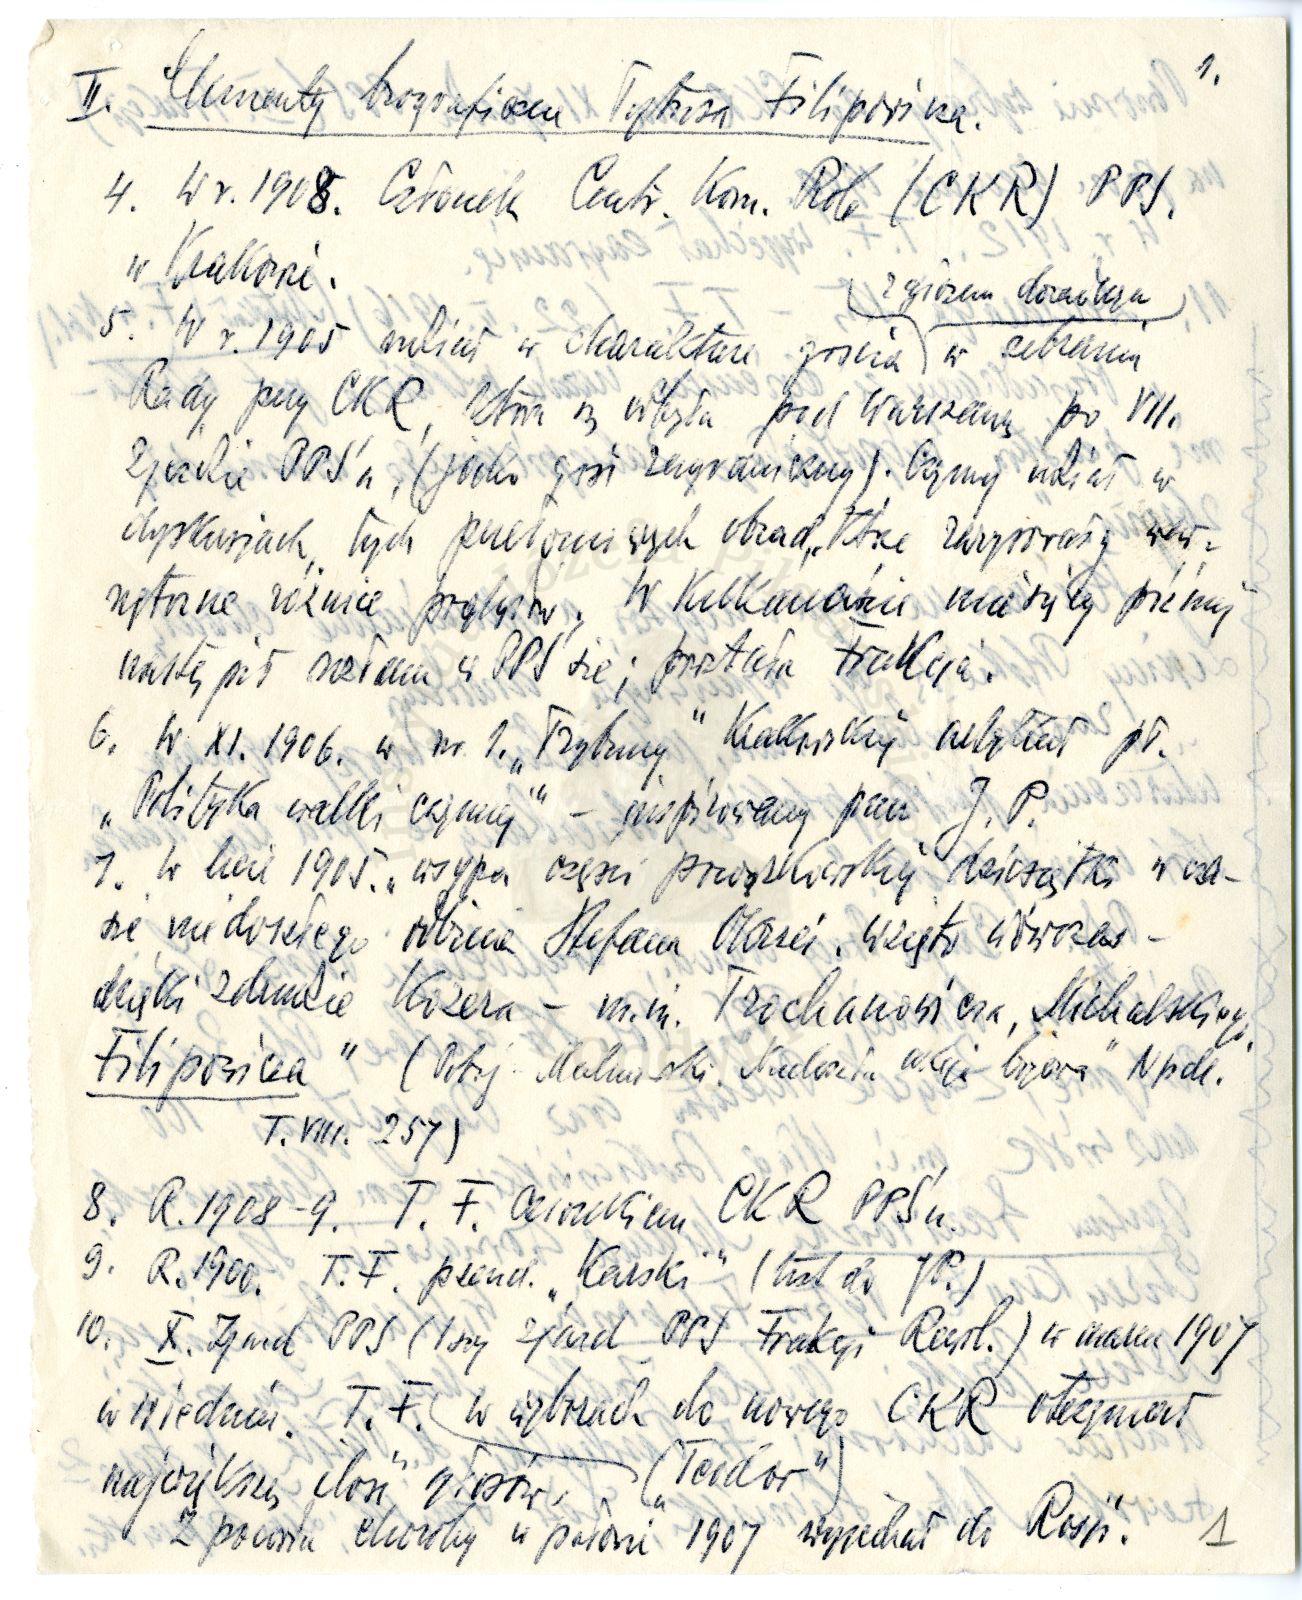 1.
II. Elementy biograficzne Tytusa Filipowicza.
4. W r. 1908. Członek Centr. Kom. Rob (CKR) PPS.
w Krakowie.
z głosem doradczym
5. W r. 1905 udział w charakterze gościa w zebraniu
Rady przy CKR, która się odbyła pod Warszawą po VII.
Zjeździe PPS'u, (jako gość zagraniczny). Czynny udział w
dyskusjach, tych przełomowych obrad, które zarysowały wew-
nętrzne różnice poglądów. W kilkanaście miesięcy później
nastąpił rozłam w PPS'ie; powstała Frakcja.
6. W XI. 1906. w nr 1. „Trybuny" Krakowskiej artykuł pt.
„Polityka walki czynnej" – inspirowany przez J. P.
7. W lecie 1905. „wsypa części powązkowskiej dziesiątki w cza-
sie niedoszłego odbicia Stefana Okrzei. Wzięto wówczas –
dzięki zdradzie Kozera – m.in. Trochanowicza, Michalskiego,
Filipowicza" (Obej. Malinowski. Nadzieja „Niepodl."
T. VIII. 257)
8. R. 1908-9. T. F. Członkiem CKR PPS'u.
9. R. 1900. T. F. pseud. „Karski" (list do JP.)
10. X. Zjazd PPS (1szy zjazd PPS Frakcji Rewol.) w marcu 1907
w Wiedniu. T. F. w wyborach do nowego CKR otrzymał
największą ilość głosów. („Teodor")
Z powodu choroby w połowie 1907 wyjechał do Rosji.
1